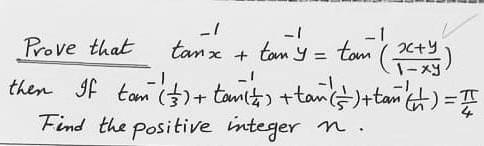 Prove that tan⁻¹x + tan⁻¹y = tan⁻¹(x+y / 1-xy)
then If tan⁻¹(1/3) + tan⁻¹(1/4) + tan⁻¹(1/5) + tan⁻¹(1/n) = π/4
Find the positive integer n.